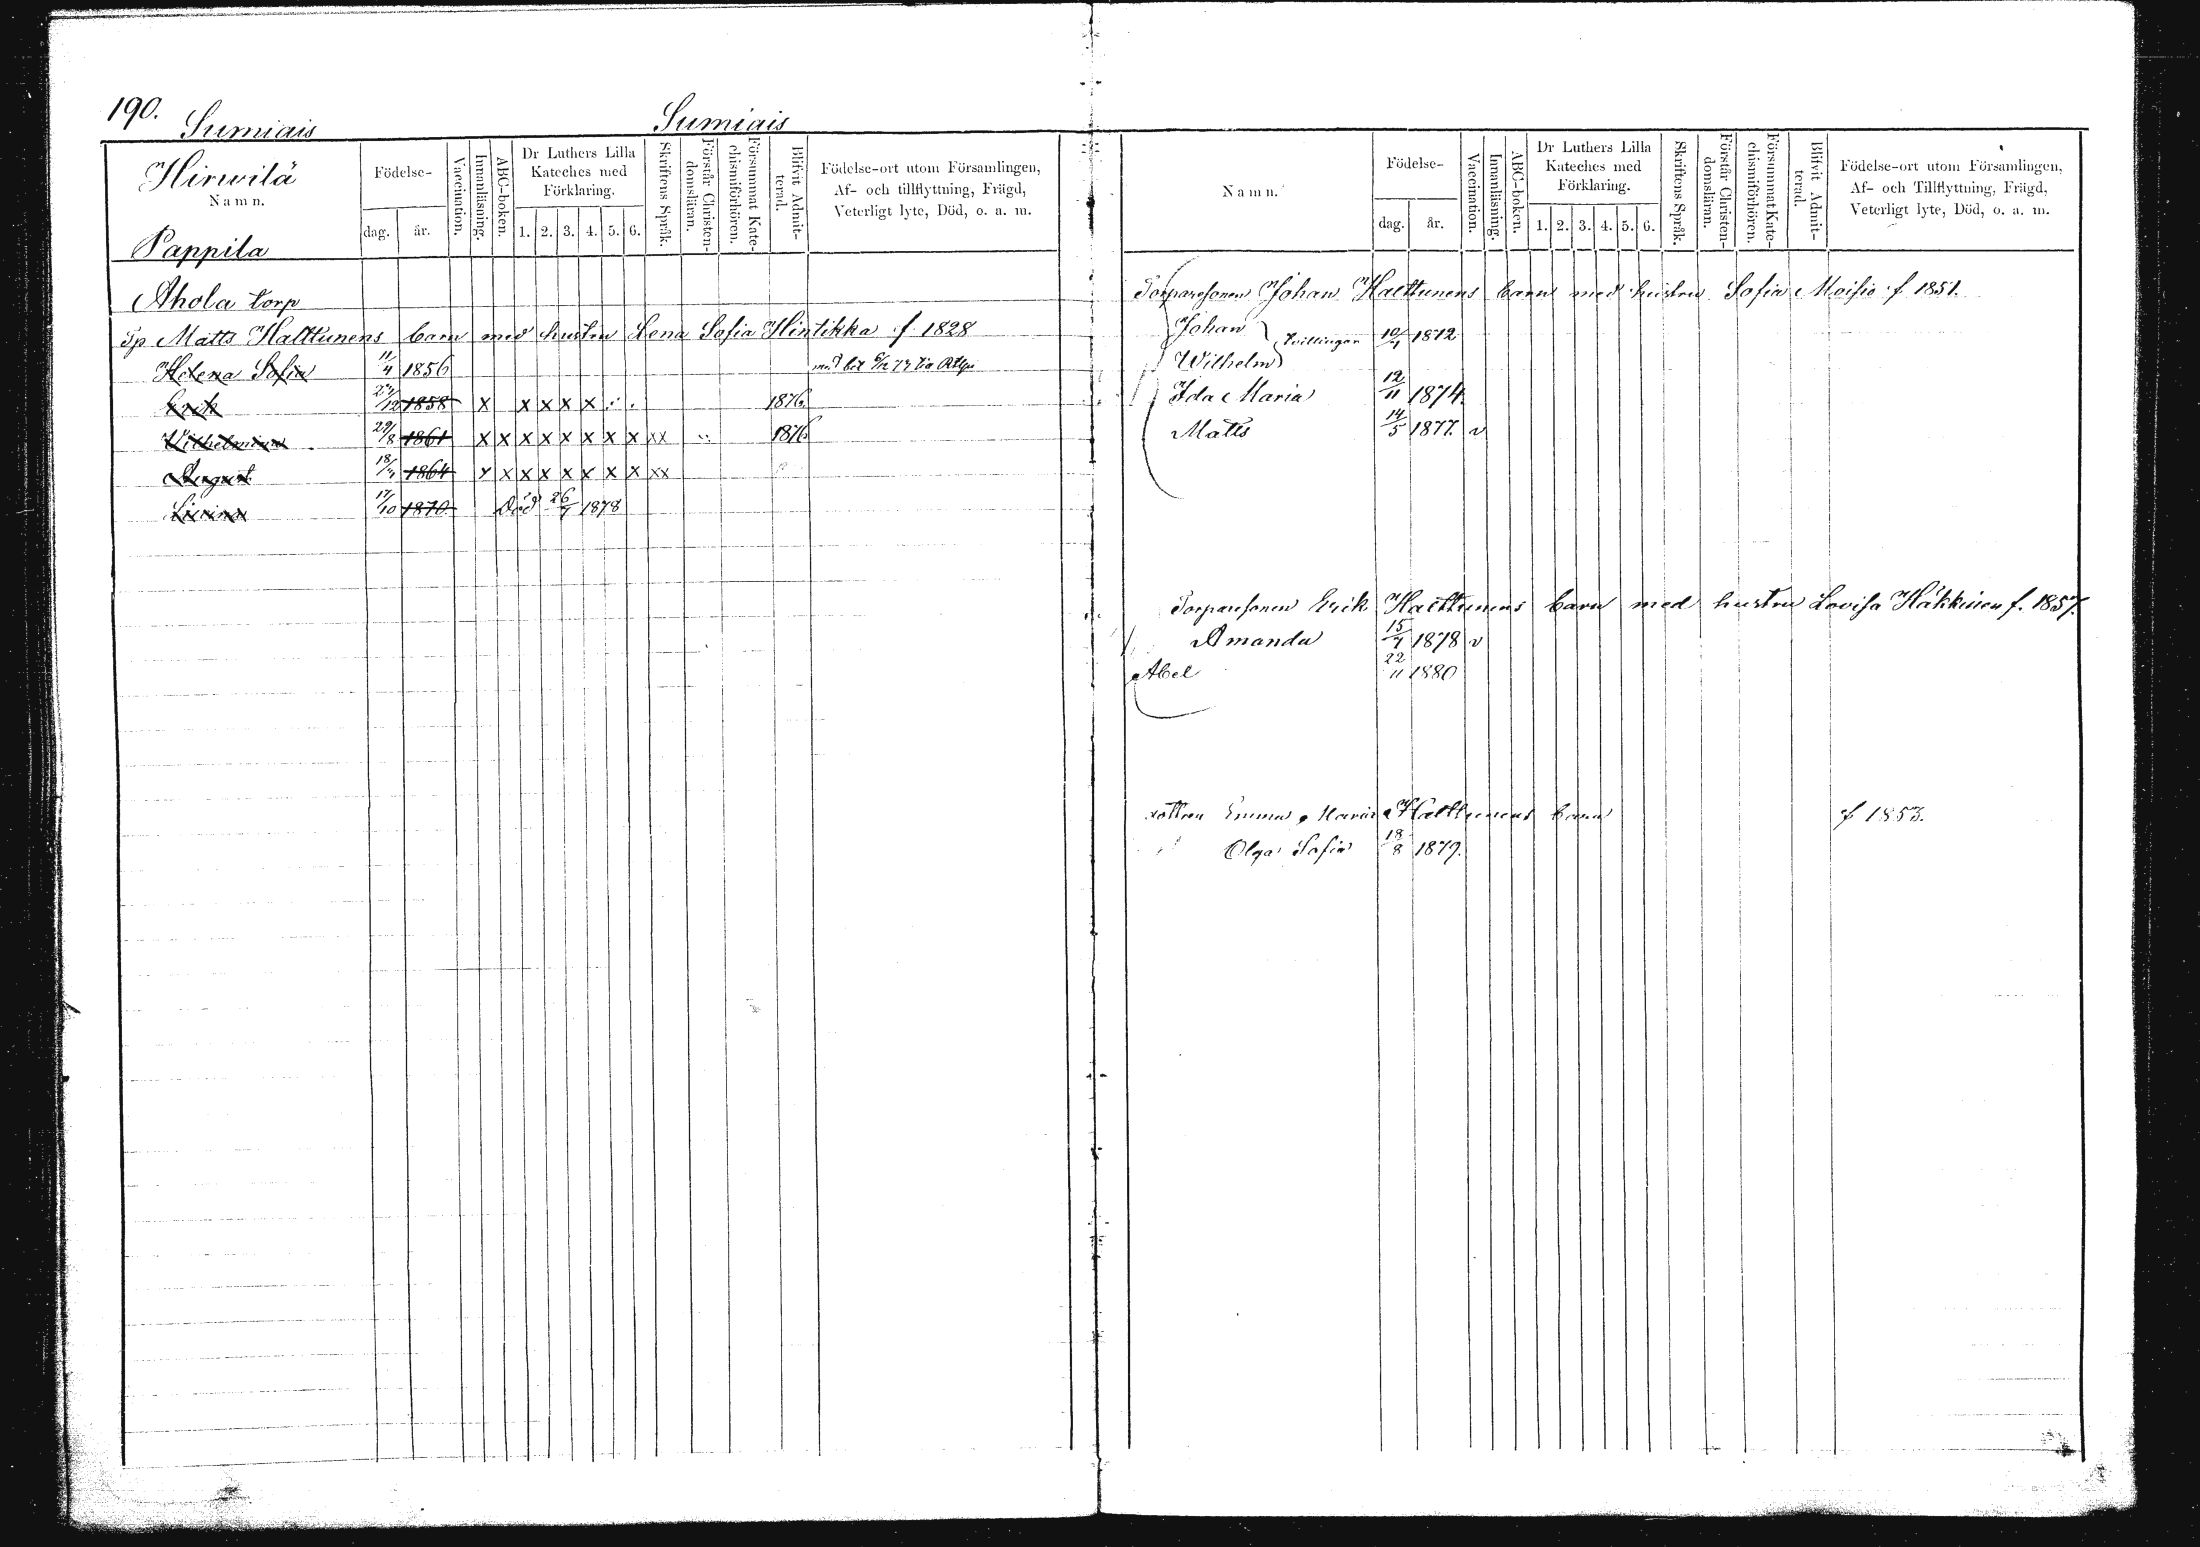 190.
Sumiais
Sumiais
Hirwilä
Namn.
Pappila
Födelse-
dag.
år.
Vaccination.
Innanläsning.
ABC-boken.
Dr Luthers Lilla
Kateches med
Förklaring.
1. 2. 3. 4. 5. 6.
Skriftens Språk.
Förstår Christen-
domsläran.
Försummat Kate-
chismiförhören.
Blifvit Admit-
terad.
Födelse-ort utom Församlingen,
Af- och tillflyttning, Frägd,
Veterligt lyte, Död, o. a. m.
Ahola torp
Tp Matts Halttunens barn med hustru Lena Sofia Hintikka f. 1828
Helena Sofia 11/4 1856
Erik 27/12 1858 x x x x x 1876
Wilhelmina 29/8 1861 x x x x x x x x xx 1876
August 18/7 1864 x x x x x x x x xx
17/10 1870 Död 26/7 1878
Namn.
Födelse-
dag.
år.
Vaccination.
Innanläsning.
ABC-boken.
Dr Luthers Lilla
Kateches med
Förklaring.
1. 2. 3. 4. 5. 6.
Skriftens Språk.
Förstår Christen-
domsläran.
Försummat Kate-
chismiförhören.
Blifvit Admit-
terad.
Födelse-ort utom Församlingen,
Af- och Tillflyttning, Frägd,
Veterligt lyte, Död, o. a. m.
Torparesonen Johan Halttunens barn med hustru Sofia Moisio f 1851.
Johan
Tvillingar 10/4 1872
Wilhelm
Ida Maria 12/11 1874.
Matts 14/5 1877. v
Torparesonen Erik Halttunens barn med hustru Lovisa Häkkinen f. 1857.
Amanda 15/7 1878 v
Abel 22/11 1880
Emma Maria Halttunens barn f 1853.
Olga Sofia 18/8 1879.